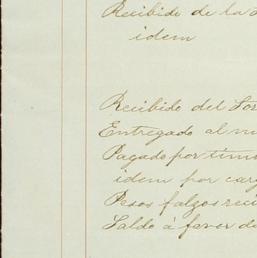 Recibido de la
idem
Recibido del
Entregado al
Pagado por
idem por
Pesos falzos
Saldo á favor